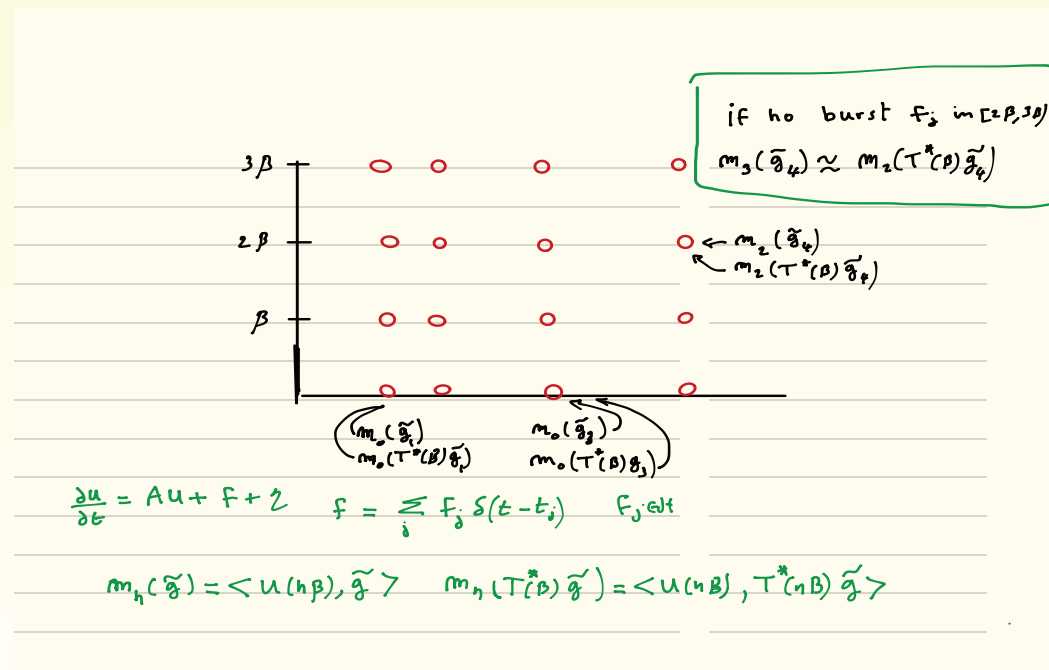 if no burst f_j in [2β,3β)
m_3(g̃_4) ≈ m_2(T*(β)g̃_4)
3β
2β
m_2(g̃_4)
m_2(T*(β)g̃_4)
β
m_0(g̃_1)
m_0(T*(β)g̃_1)
m_0(g̃_3)
m_0(T*(β)g_3)
∂u/∂t = Au + f + η
f = Σ_j f_j δ(t-t_j)
m_n(g̃) = <u(nβ), g̃>
m_n(T*(β)g̃) = <u(nβ), T*(nβ)g̃>